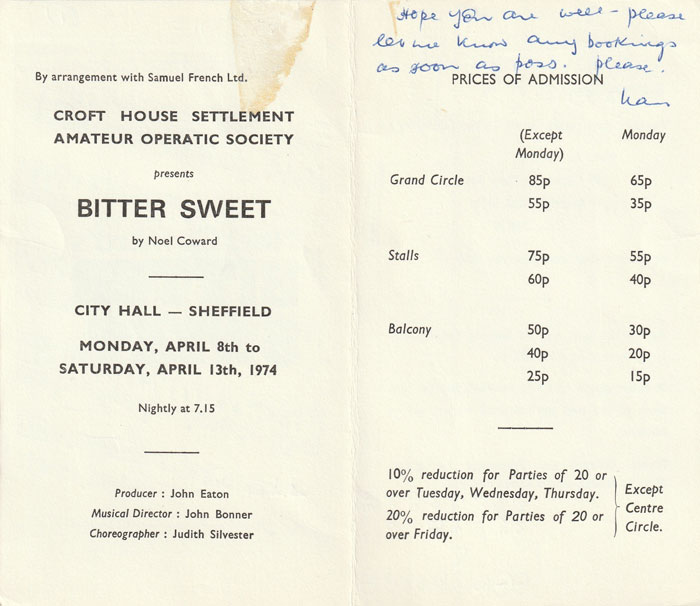 By arrangement with Samuel French Ltd.
CROFT HOUSE SETTLEMENT
AMATEUR OPERATIC SOCIETY
presents
BITTER SWEET
by Noel Coward
CITY HALL — SHEFFIELD
MONDAY, APRIL 8th to
SATURDAY, APRIL 13th, 1974
Nightly at 7.15
Producer : John Eaton
Musical Director : John Bonner
Choreographer : Judith Silvester
Hope you are well - please
let me know any bookings
as soon as poss. please.
PRICES OF ADMISSION
(Except Monday
Monday)
Grand Circle 85p 65p
55p 35p
Stalls 75p 55p
60p 40p
Balcony 50p 30p
40p 20p
25p 15p
10% reduction for Parties of 20 or
over Tuesday, Wednesday, Thursday.
20% reduction for Parties of 20 or
over Friday.
Except
Centre
Circle.